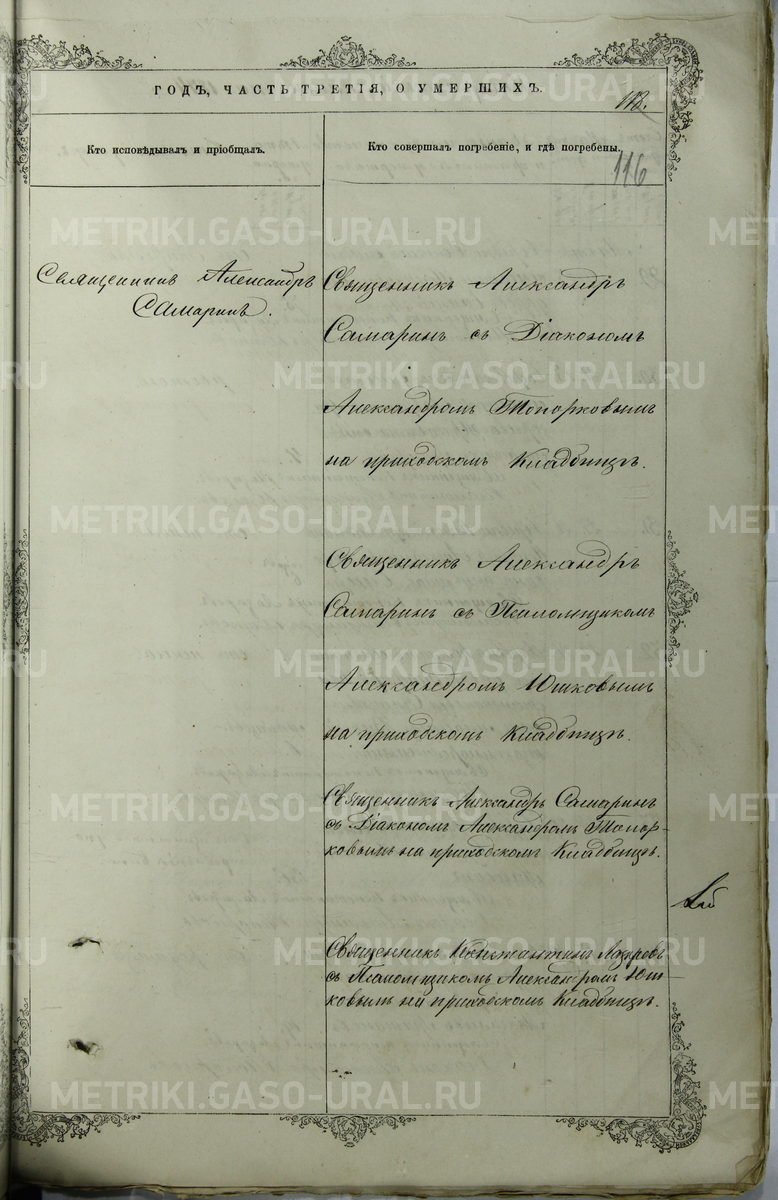 ГОДЪ, ЧАСТЬ ТРЕТІЯ, О УМЕРШИХЪ.
118.
Кто исповѣдывалъ и пріобщалъ.
Кто совершалъ погребеніе, и гдѣ погребены.
116
Священникъ Александръ
Самаринъ.
Священникъ Александръ
Самаринъ съ Діакономъ
Александромъ Топорковымъ
на приходскомъ Кладбищѣ.
Священникъ Александръ
Самаринъ съ Псаломщикомъ
Александромъ Юшковымъ
на приходскомъ Кладбищѣ.
Священникъ Александръ Самаринъ
съ Діакономъ Александромъ Топор-
ковымъ на приходскомъ Кладбищѣ.
Священникъ Константинъ
съ Псаломщикомъ Александромъ Юш-
ковымъ на приходскомъ Кладбищѣ.
METRIKI.GASO-URAL.RU